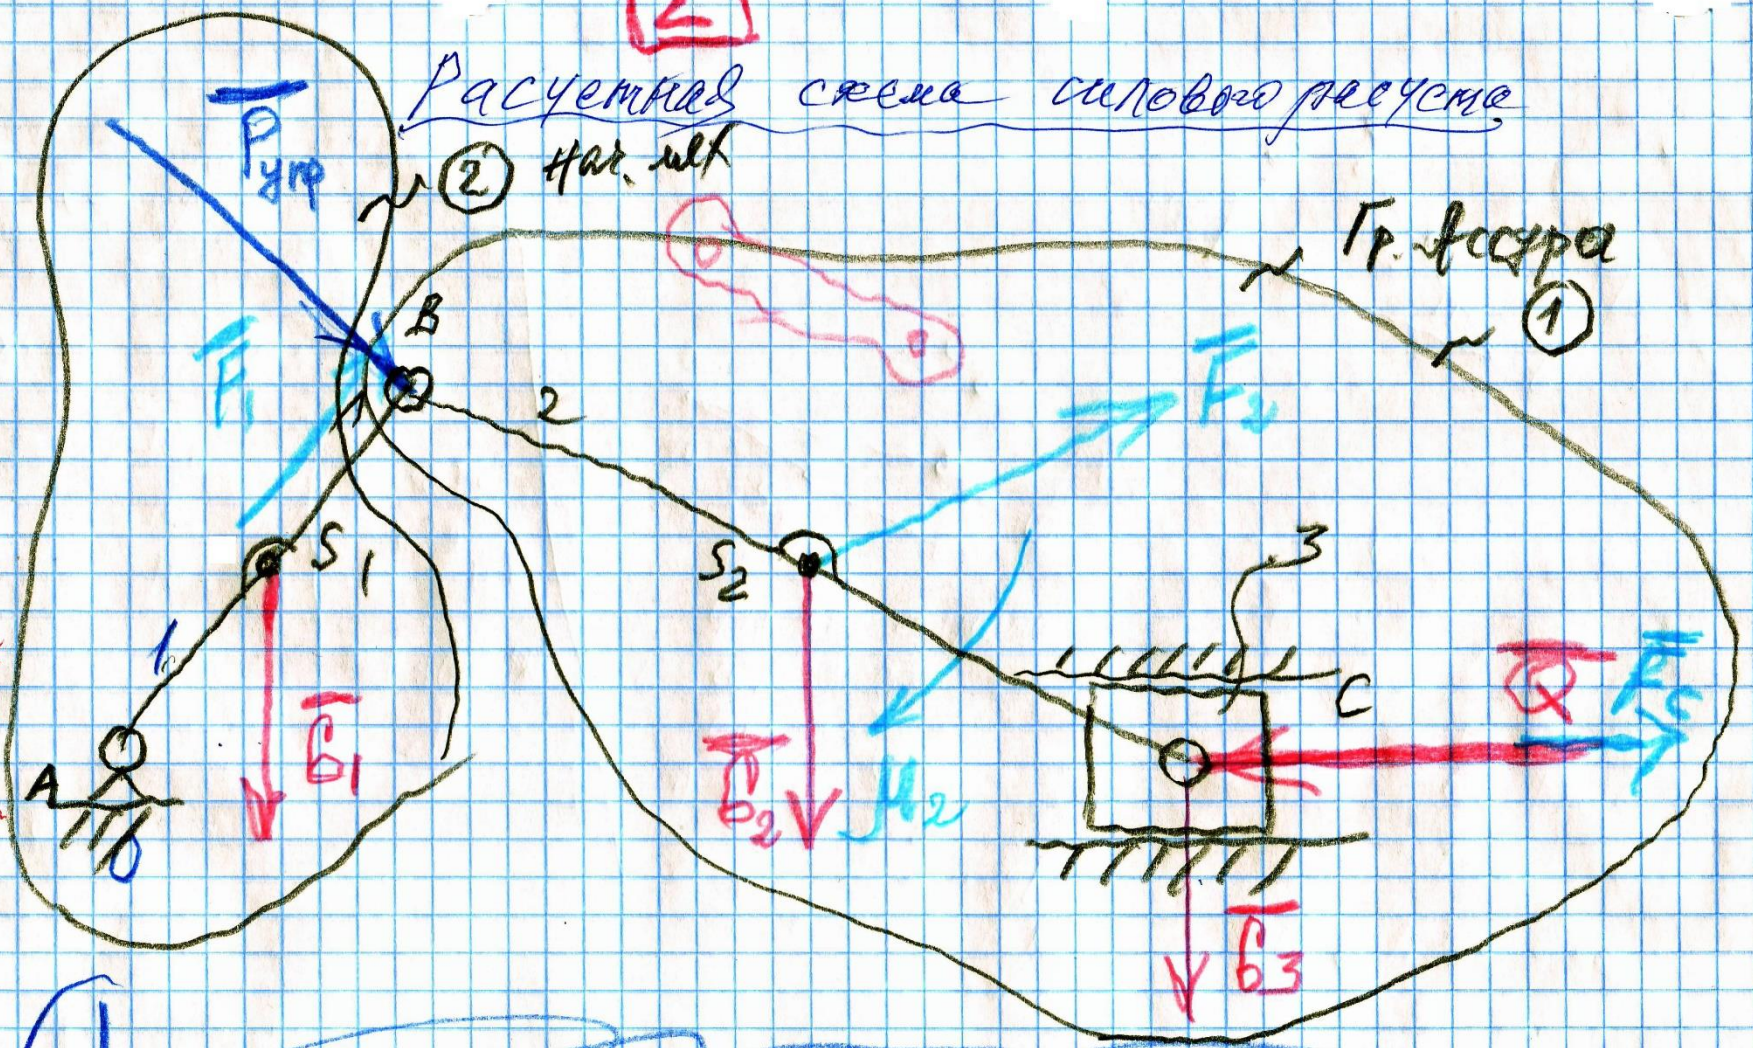 2
Расчетная схема силового расчета
P̅упр
② Нач. мех
Гр. Ассура
①
B
F̅₁
2
F̅₂
S₁
S₂
3
1
G̅₁
C
Q̅
F̅c
A
G̅₂
M₂
0
G̅₃